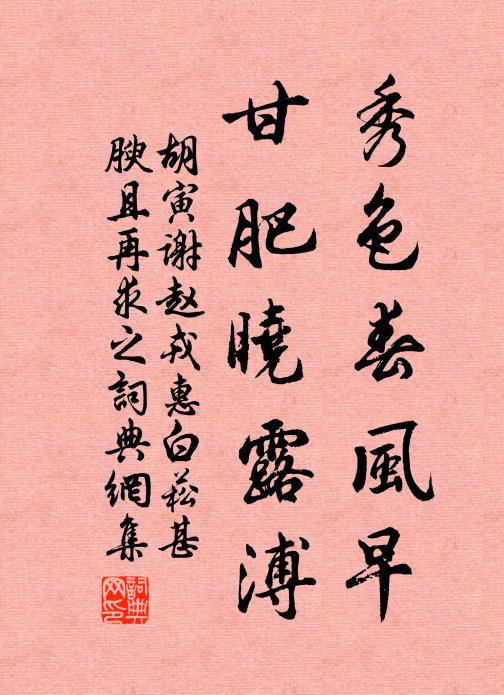 秀色春風早
甘肥曉露溥
胡寅谢赵戎惠白菘甚
腴且再求之詞典網集
詞典網印